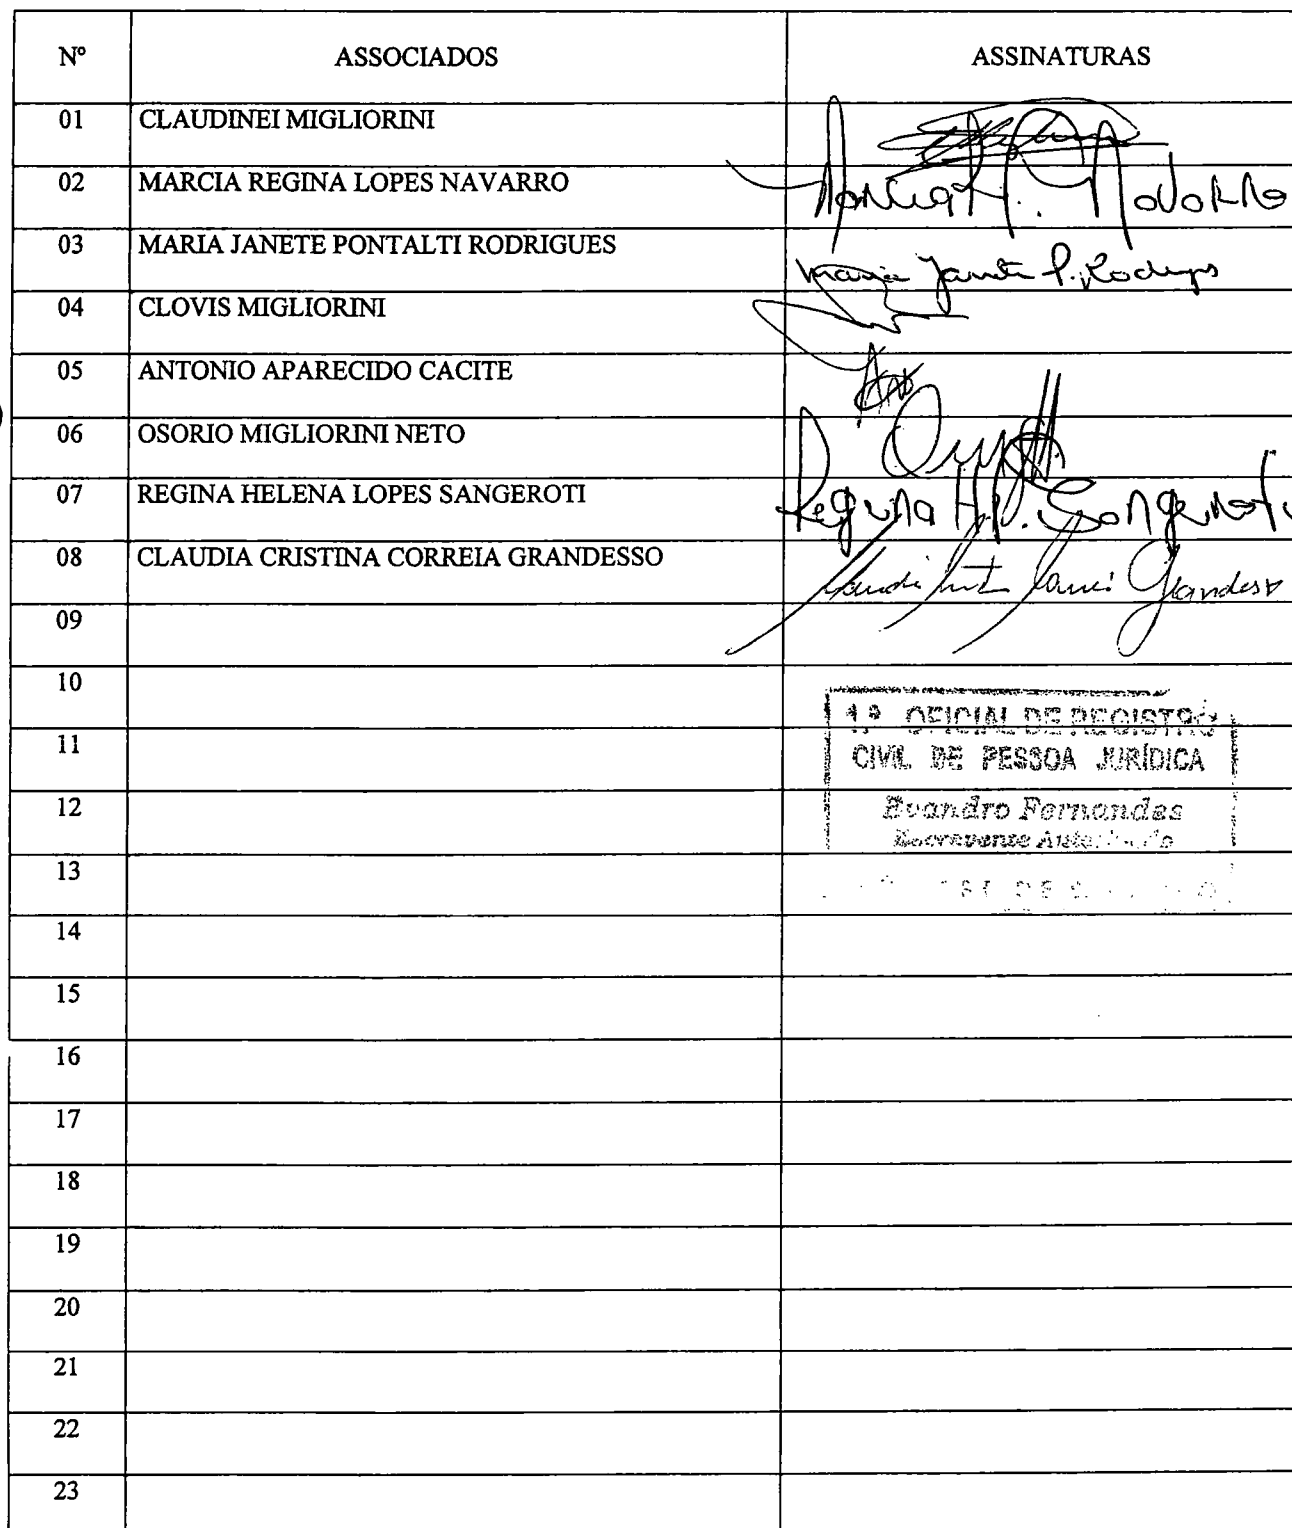 Nº ASSOCIADOS ASSINATURAS
01 CLAUDINEI MIGLIORINI
02 MARCIA REGINA LOPES NAVARRO Marcia R. Navarro
03 MARIA JANETE PONTALTI RODRIGUES Maria Janete P. Rodrigues
04 CLOVIS MIGLIORINI
05 ANTONIO APARECIDO CACITE
06 OSORIO MIGLIORINI NETO
07 REGINA HELENA LOPES SANGEROTI Regina H. L. Sangeroti
08 CLAUDIA CRISTINA CORREIA GRANDESSO Grandesso
09
10
1.º OFICIAL DE REGISTRO
11
CIVIL DE PESSOA JURÍDICA
12 Evandro Fernandes
Escrevente Autorizado
13
14
15
16
17
18
19
20
21
22
23